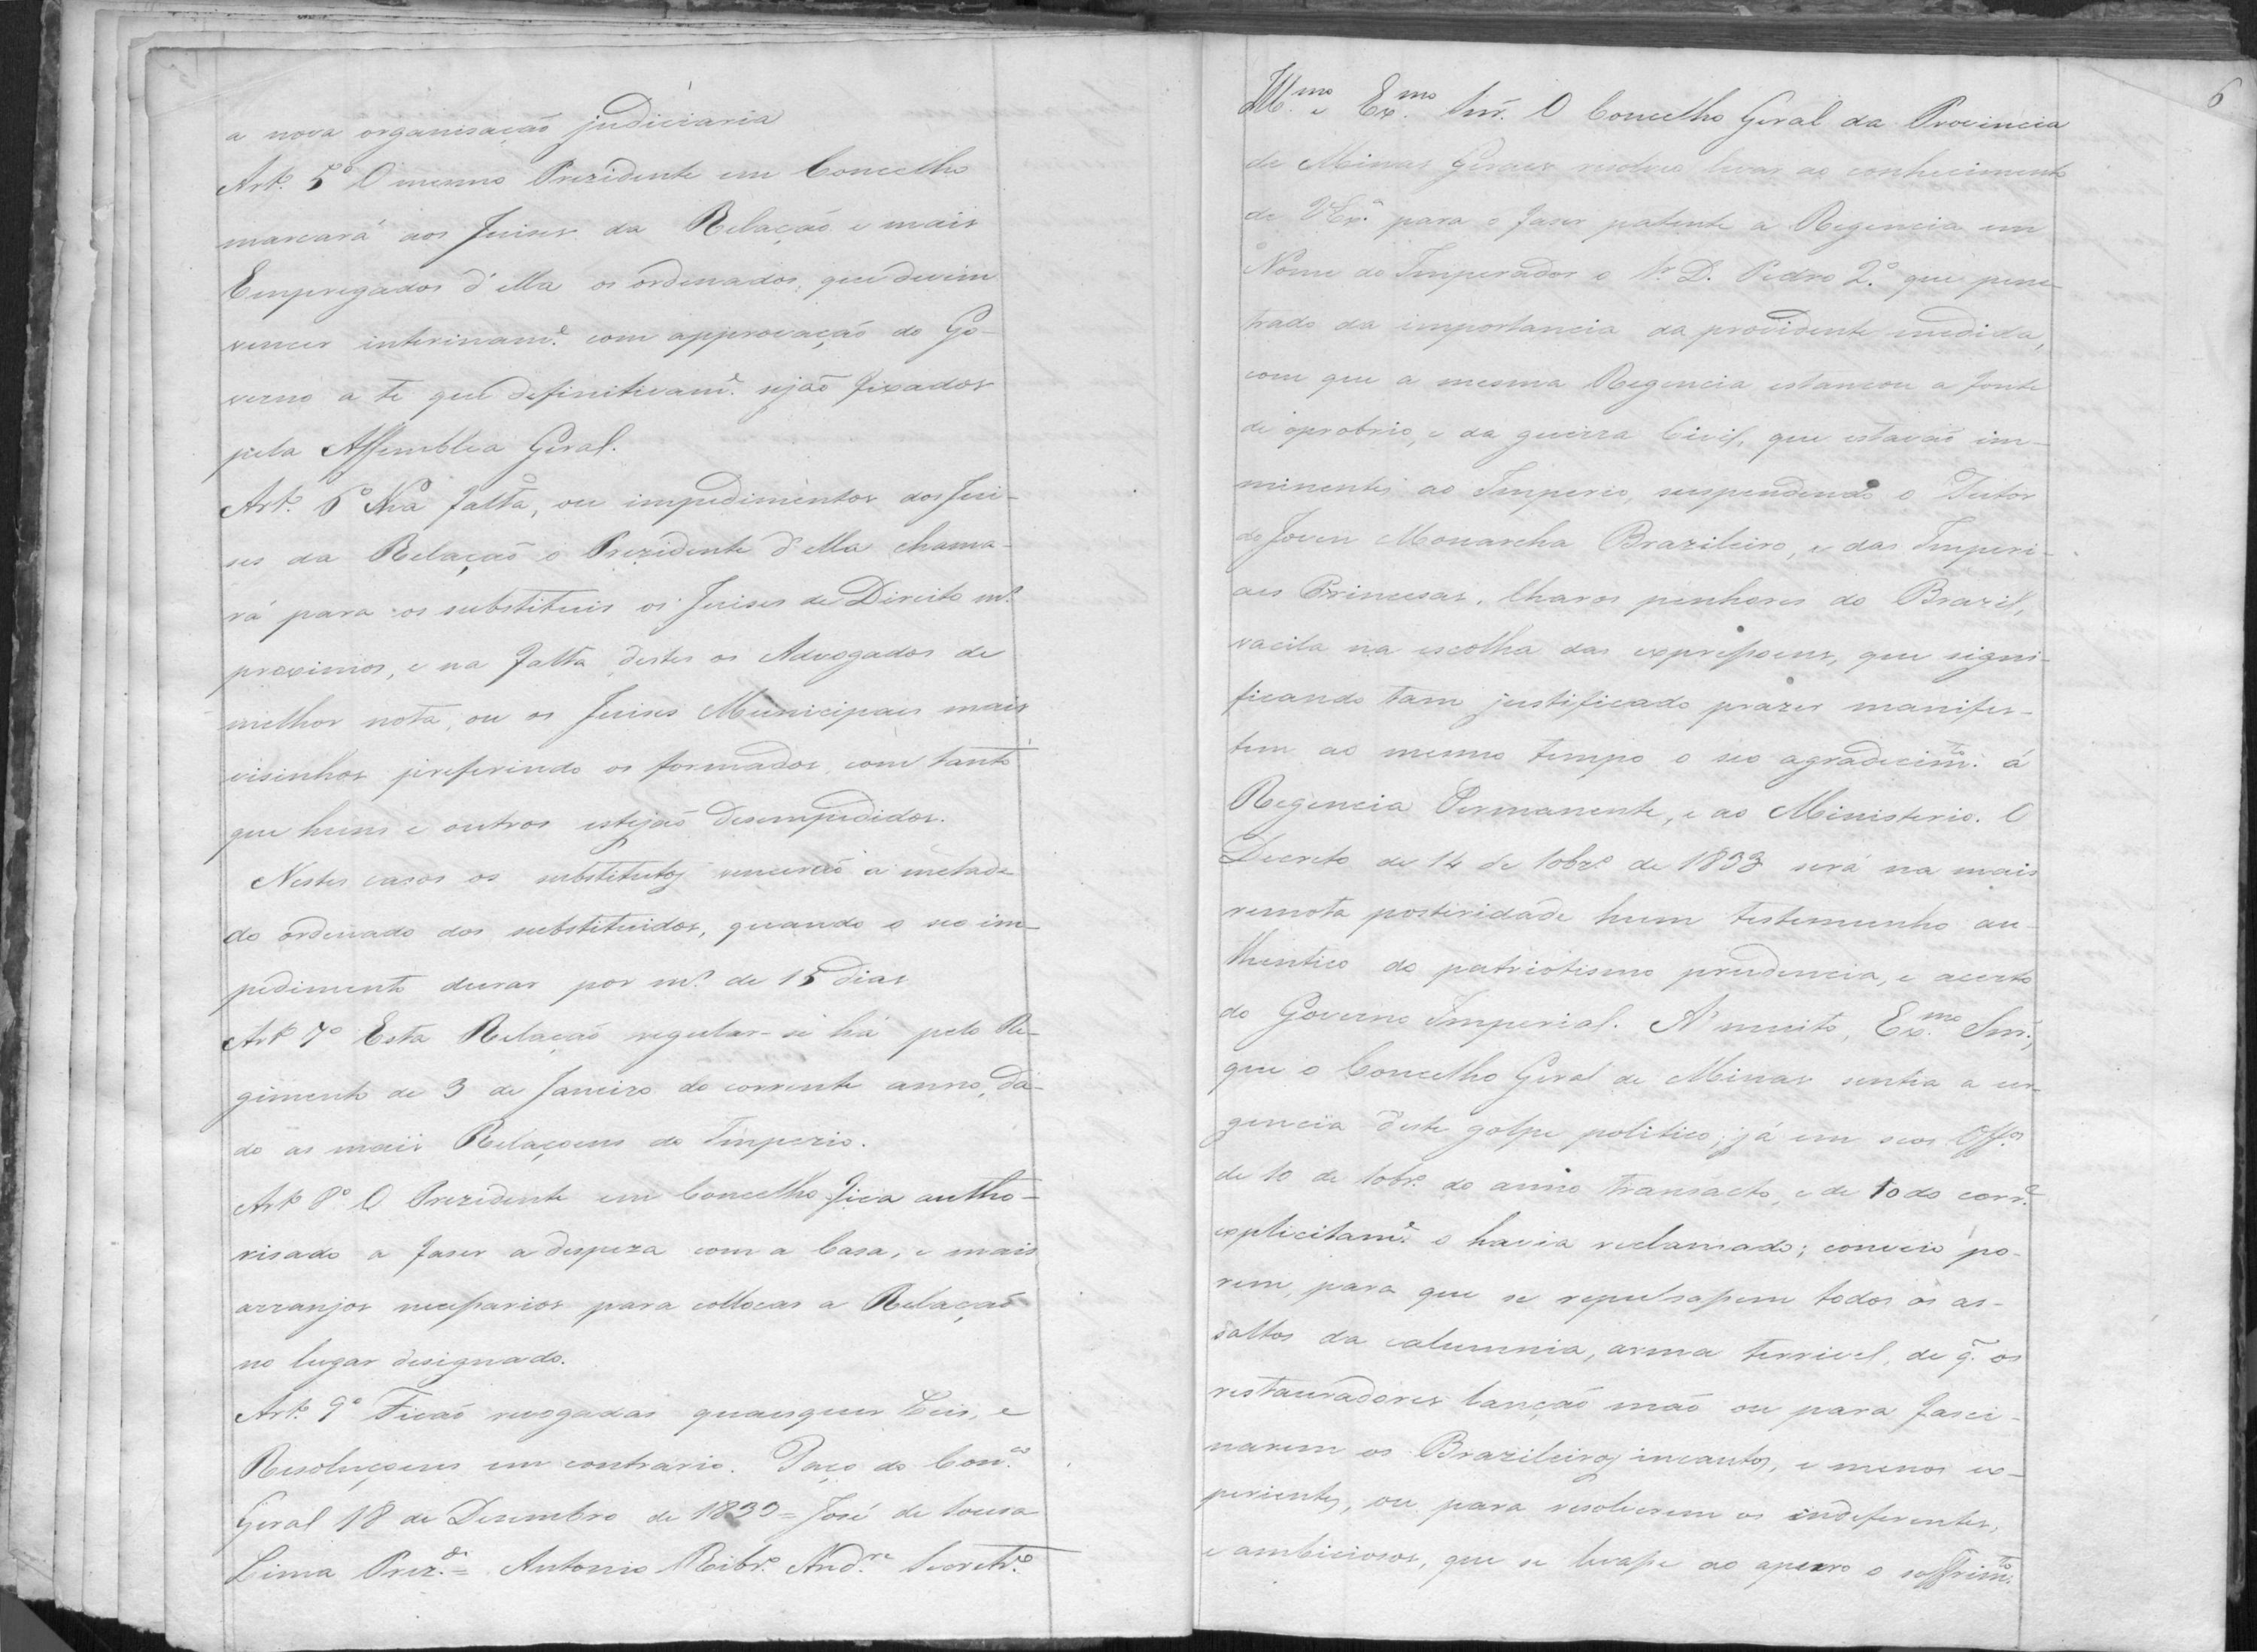 a nova organisação judiciaria
Art.º 5º O mesmo Prezidente em Concelho
marcará aos Juises da Relação e mais
Empregados d'ella os ordenados, que devem
vencer interinam.e com approvação do Go-
verno a te que definitivam.e sejão fixados
pela Assemblea Geral.
Art.º 6º Na falta, ou impedimentos dos Jui-
ses da Relação o Prezidente d'ella chama-
rá para os substituir os Juises de Direito m.s
proximos, e na falta destes os Advogados de
melhor nota, ou os Juises Municipaes mais
visinhos preferindo os formados, com tanto
que huns e outros estejão desempedidos.
Nestes casos os substitutos vencerão a metade
do ordenado dos substituidos, quando o seo im-
pedimento durar por m.s de 15 dias
Art.º 7º Esta Relação regular-se há pelo Re-
gimento de 3 de Janeiro do corrente anno, da-
do as mais Relaçoens do Imperio.
Art.º 8º O Prezidente em Concelho fica autho-
risado a faser a despeza com a Casa, e mais
arranjos necessarios para collocar a Relação
no lugar designado.
Art.º 9º Ficão revogadas quaesquer Leis, e
Resoluçoens em contrario. Paço do Con.co
Geral 18 de Dezembro de 1833 = José de Sousa
Lima Prez.de = Antonio Ribr.º And.re Secretr.º
6
Ill.mo e Ex.mo Snr. O Concelho Geral da Provincia
de Minas Geraes resolveo levar ao conhecimento
de V Ex.ª para o faser patente a Regencia em
Nome do Imperador o Sr. D. Pedro 2.º que pene-
trado da importancia da providente medida,
com que a mesma Regencia estancou a fonte
de oprobrio, e da guerra Civil, que estavão im-
minentes ao Imperio, suspendendo o Tutor
do Joven Monarcha Brazileiro, e das Imperi-
aes Princesas, Charos penhores do Brazil,
vacila na escolha das expressoens, que signi-
ficando tam justificado prazer manifes-
tem ao mesmo tempo o seo agradecim.to á
Regencia Permanente, e ao Ministerio. O
Decreto de 14 de 10br.º de 1833 será na mais
remota posteridade hum testemunho au-
thentico do patriotismo prudencia, e acerto
do Governo Imperial. A' muito, Ex.mo Snr.,
que o Concelho Geral de Minas sentia a ur-
gencia deste golpe politico; já em seos Off.os
de 10 de 10br.º do anno transacto, e de 10 do corr.e
explicitam.e o havia reclamado; conveio po-
rem, para que se repulsassem todos os as-
saltos da calumnia, arma terrivel, de q. os
restauradores lanção mão ou para fasci-
narem os Brazileiros incautos, e menos ex-
perientes, ou para resolverem os indeferentes,
e ambiciosos, que se levasse ao apuro o soffrim.to